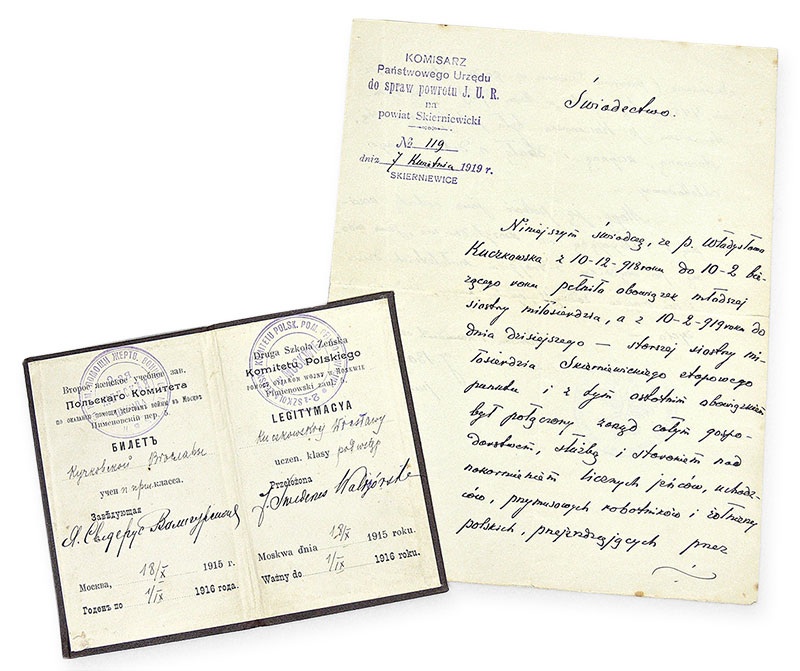 KOMISARZ
Państwowego Urzędu
do spraw powrotu J. U. R.
na
powiat Skierniewicki
№ 119
dnia 7 Kwietnia 1919 r.
SKIERNIEWICE
Świadectwo.
Niniejszym świadczę, że p. Władysława
Kuczkowska z 10-12-918 roku do 10-2 bie-
żącego roku pełniła obowiązek młodszej
siostry miłosierdzia, a z 10-2-919 roku do
dnia dzisiejszego — starszej siostry mi-
łosierdzia Skierniewickiego etapowego
punktu i z tym ostatnim obowiązkiem
był połączony zarząd całym gospo-
darstwem, służbą i staraniem nad
nakarmieniem licznych jeńców, uchodź-
ców, przymusowych robotników i żołnierzy
polskich, przejeżdżających przez
Второе женское учебное зав.
Польскаго Комитета
по оказанію помощи жертвамъ войны въ Москвѣ
Пименовскій пер. 5.
БИЛЕТЪ
Кучковской
учен класса.
Завѣдующая
Москва, 18/IX 1915 г.
Годенъ по 1/IX 1916 года.
Druga Szkoła Żeńska
Komitetu Polskiego
pomocy ofiarom wojny w Moskwie
Pimenowski zauł. 5.
LEGITYMACYA
Kuczkowskiej
uczen. klasy podwstęp
Przełożona
Moskwa dnia 18/IX 1915 roku.
Ważny do 1/IX 1916 roku.